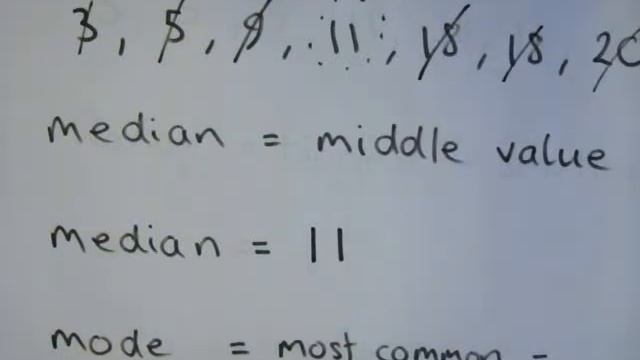 3, 5, 9, 11, 18, 18, 20
median = middle value
median = 11
mode = most common -